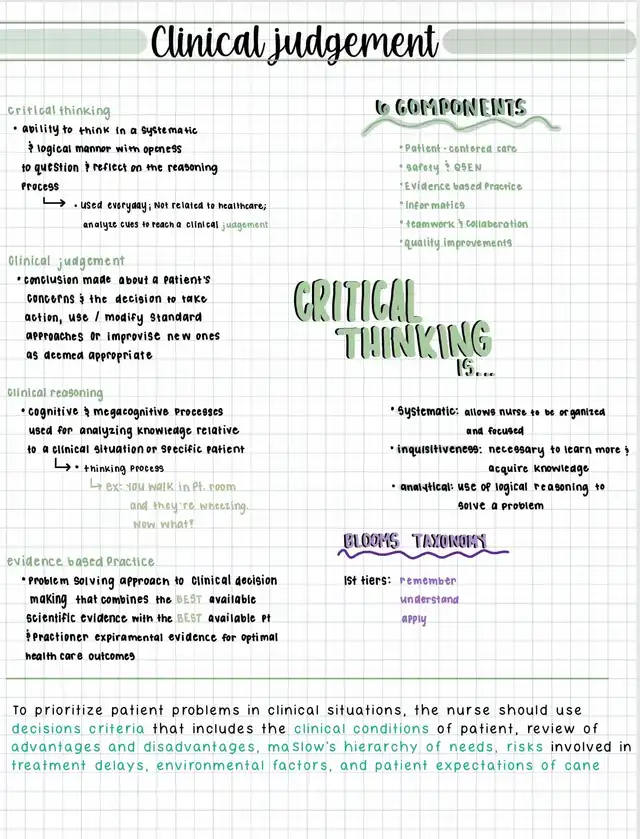 Clinical judgement
critical thinking
• ability to think in a systematic
& logical mannor with openess
to question & reflect on the reasoning
process
• used everyday; Not related to healthcare;
analyze cues to reach a clinical judgement
Clinical judgement
• conclusion made about a patient's
concerns & the decision to take
action, use / modify standard
approaches or improvise new ones
as deemed appropriate
Clinical reasoning
• cognitive & megacognitive processes
used for analyzing knowledge relative
to a clinical situation or specific patient
• thinking process
ex: you walk in pt. room
and they're wheezing.
now what?
evidence based practice
• problem solving approach to clinical decision
making that combines the BEST available
scientific evidence with the BEST available pt
& practioner expiramental evidence for optimal
health care outcomes
6 COMPONENTS
• Patient-centered care
• safety & QSEN
• Evidence based practice
• informatics
• teamwork & collaberation
• quality improvements
CRITICAL
THINKING
IS...
• systematic: allows nurse to be organized
and focused
• inquisitiveness: necessary to learn more &
acquire knowledge
• analytical: use of logical reasoning to
solve a problem
BLOOMS TAXONOMY
1st tiers: remember
understand
apply
To prioritize patient problems in clinical situations, the nurse should use
decisions criteria that includes the clinical conditions of patient, review of
advantages and disadvantages, maslow's hierarchy of needs, risks involved in
treatment delays, environmental factors, and patient expectations of cane